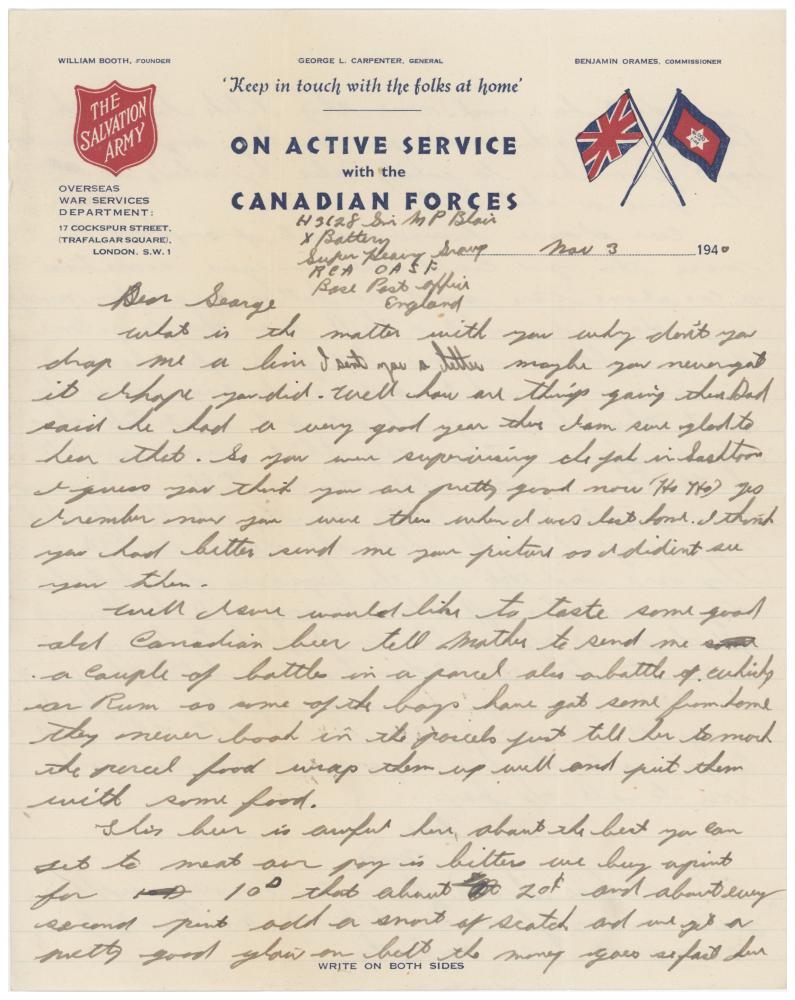 WILLIAM BOOTH, FOUNDER
GEORGE L. CARPENTER, GENERAL
BENJAMIN ORAMES, COMMISSIONER
'Keep in touch with the folks at home'
THE
SALVATION
ARMY
ON ACTIVE SERVICE
with the
CANADIAN FORCES
OVERSEAS
WAR SERVICES
DEPARTMENT:
17 COCKSPUR STREET,
(TRAFALGAR SQUARE),
LONDON. S.W.1
H3628 Gnr M P Blair
X Battery
Super Heavy Group
Nov 3 1940
RCA OASF
Base Post Office
England
Dear George
What is the matter with you why don't you
drop me a line I sent you a letter maybe you never got
it I hope you did. Well how are things going there Dad
said he had a very good year there I am sure glad to
hear that. So you were supervising the job in Saskatoon
I guess you think you are pretty good now (Ho Ho) yes
I remember now you were there when I was last home. I think
you had better send me your picture as I didient see
you then.
Well I sure would like to taste some good
old Canadian beer tell Mother to send me
a couple of bottles in a parcel also a bottle of
or Rum as some of the boys have got some from home
they never look in the parcels just tell her to mark
the parcel food wrap them up well and put them
with some food.
This beer is awful here, about the best you can
get to meat our pay is bitters we buy a pint
for 10D that about 20¢ and about every
second pint add a snort of scotch ad we get a
pretty good glow on but the money goes so fast here
WRITE ON BOTH SIDES